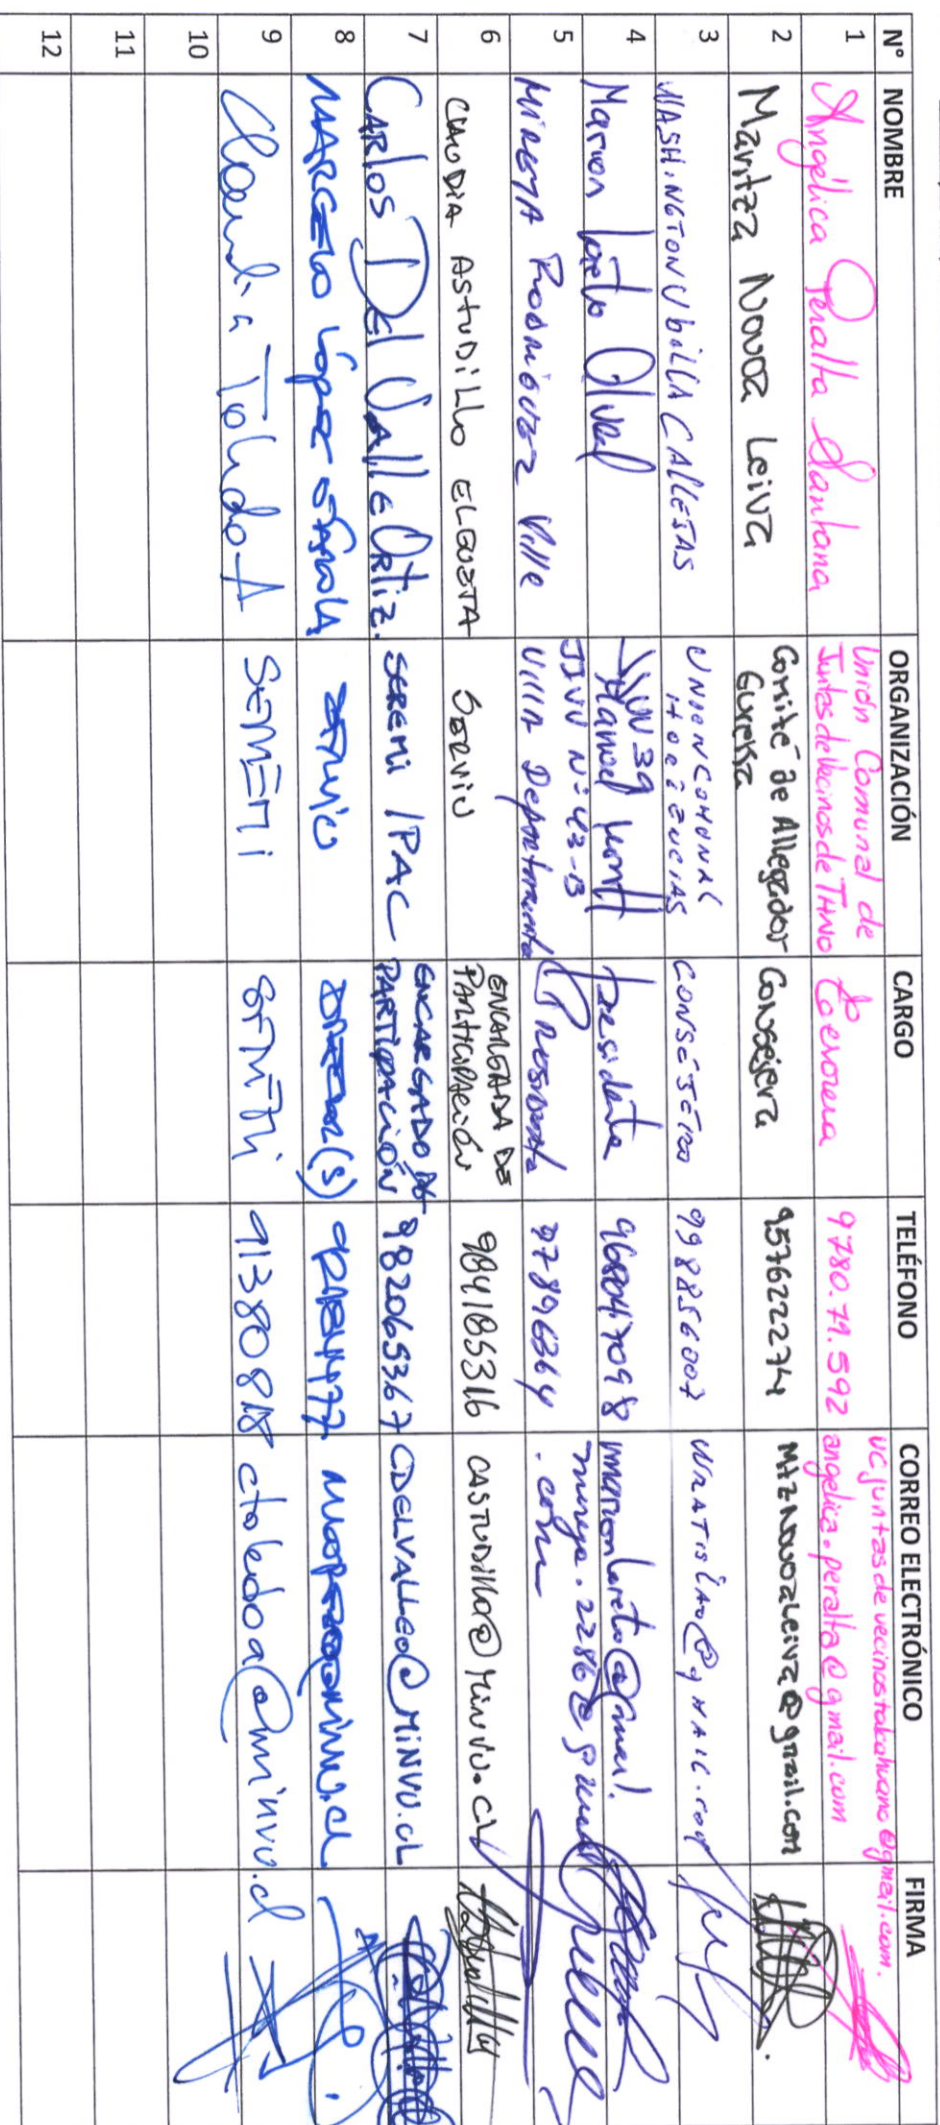 N° NOMBRE ORGANIZACIÓN CARGO TELÉFONO CORREO ELECTRÓNICO FIRMA
1 Angélica Peralta Santana Unión Comunal de Juntas de Vecinos de THNO 9780.79.592 ucjuntasdevecinostalcahuano@gmail.com. angelica.peralta@gmail.com
2 Maritza Novoa Leiva Comité de Allegados Consejera 957622274 MtzNovoaLeiva@gmail.com
3 WASHINGTON UbILLA CALLEJAS UNION COMUNAL CONSEJERO 998856007
4 Marion Loreto JJVV 39 Manuel Montt Presidenta 968047098 marionloreto@gmail.
5 MIREYA RODRIGUEZ JJVV N° 43-B VILLA Departamental Presidenta 77896364 .com
6 CLAUDIA ASTUDILLO ELGUETA SERVIU ENCARGADA DE PARTICIPACIÓN 984185316 CASTUDILLO@MINVU.CL
7 CARLOS DEL VALLE ORTIZ. SEREMI /PAC ENCARGADO DE PARTICIPACIÓN 982065367 CDELVALLEO@MINVU.CL
8 MARCELO LÓPEZ SERVIU DIRECTOR(S)
9 Claudia Toledo A SEREMI SEREMI 91380818 ctoledoa@minvu.cl
10
11
12